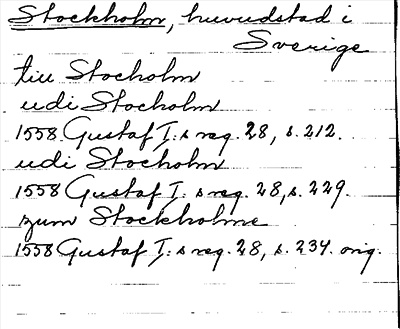 Stockholm, huvudstad i
Sverige
till Stocholm
udi Stocholm
1558 Gustaf I:s reg. 28, s. 212.
udi Stocholm
1558 Gustaf I:s reg. 28, s. 229.
zum Stockholme
1558 Gustaf I:s reg. 28, s. 234. orig.